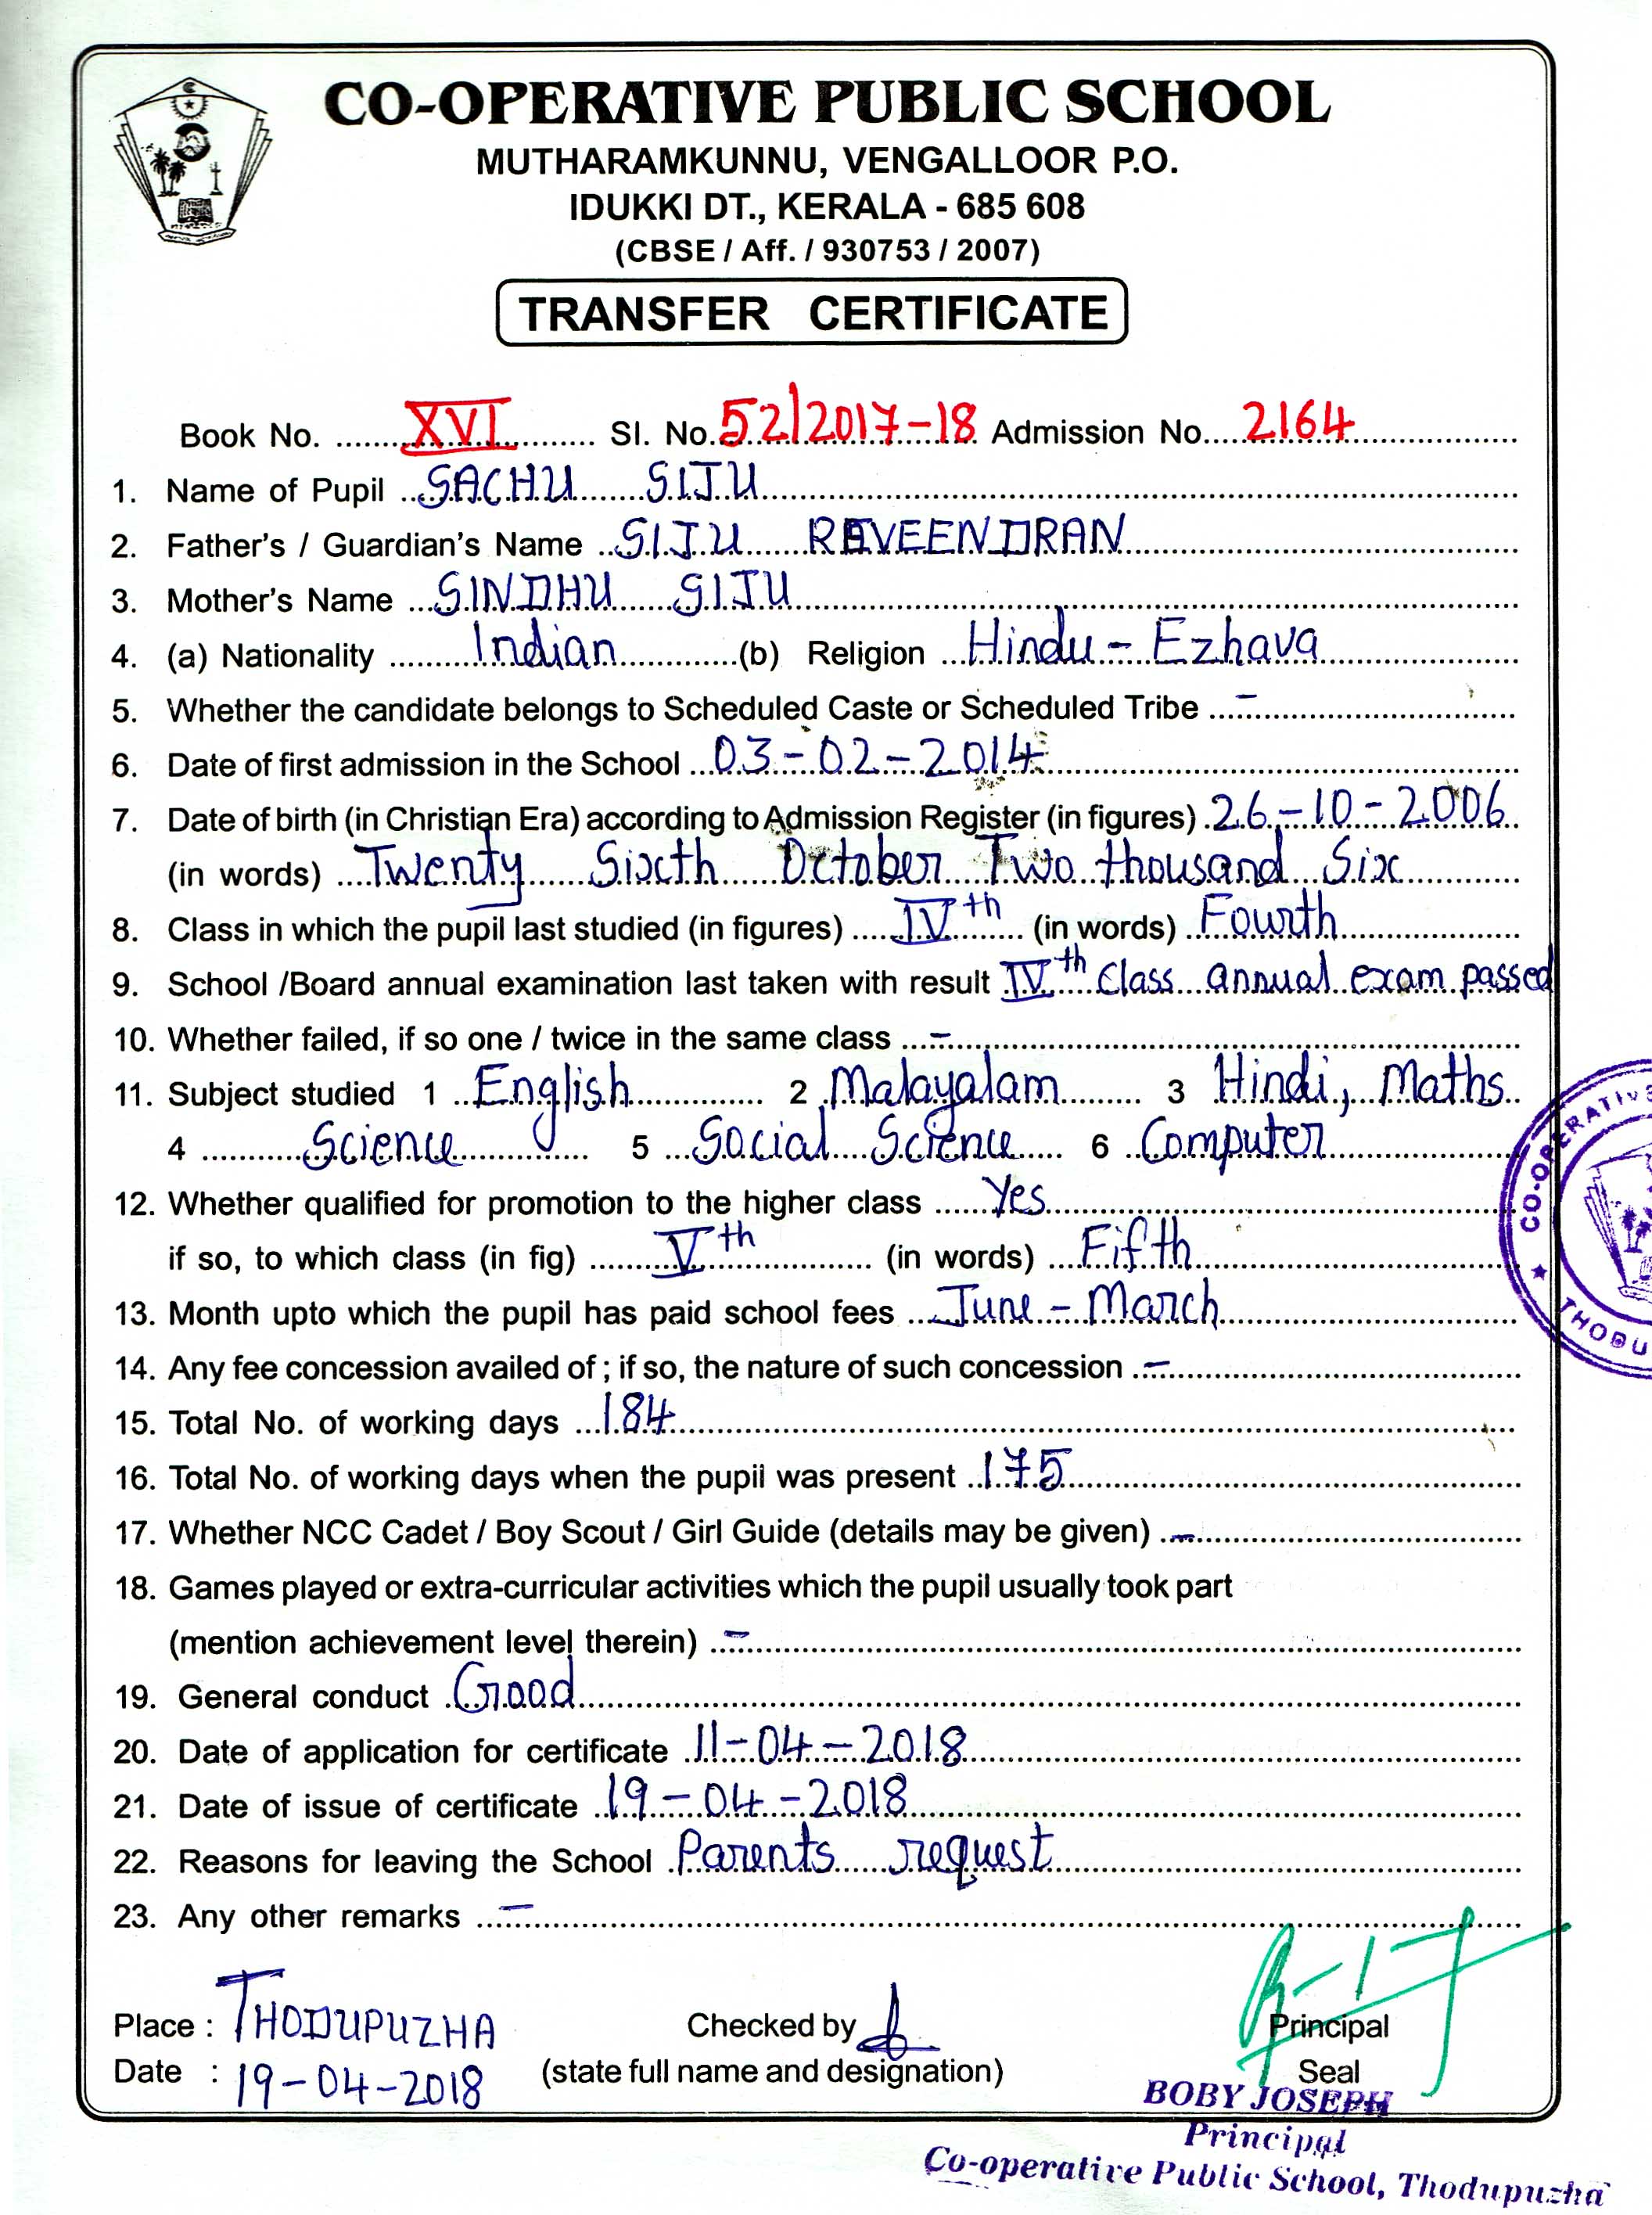 CO-OPERATIVE PUBLIC SCHOOL
MUTHARAMKUNNU, VENGALLOOR P.O.
IDUKKI DT., KERALA - 685 608
(CBSE / Aff. / 930753 / 2007)
TRANSFER CERTIFICATE
Book No. XVI Sl. No. 52/2017-18 Admission No. 2164
1. Name of Pupil SACHU SIJU
2. Father's / Guardian's Name SIJU RAVEENDRAN
3. Mother's Name SINDHU SIJU
4. (a) Nationality Indian (b) Religion Hindu - Ezhava
5. Whether the candidate belongs to Scheduled Caste or Scheduled Tribe -
6. Date of first admission in the School 03-02-2014
7. Date of birth (in Christian Era) according to Admission Register (in figures) 26-10-2006
(in words) Twenty Sixth October Two thousand Six
8. Class in which the pupil last studied (in figures) IVth (in words) Fourth
9. School /Board annual examination last taken with result IVth Class annual exam passed
10. Whether failed, if so one / twice in the same class -
11. Subject studied 1 English 2 Malayalam 3 Hindi, Maths
4 Science 5 Social Science 6 Computer
12. Whether qualified for promotion to the higher class Yes
if so, to which class (in fig) Vth (in words) Fifth
13. Month upto which the pupil has paid school fees June - March
14. Any fee concession availed of ; if so, the nature of such concession -
15. Total No. of working days 184
16. Total No. of working days when the pupil was present 175
17. Whether NCC Cadet / Boy Scout / Girl Guide (details may be given) -
18. Games played or extra-curricular activities which the pupil usually took part
(mention achievement level therein) -
19. General conduct Good
20. Date of application for certificate 11-04-2018
21. Date of issue of certificate 19-04-2018
22. Reasons for leaving the School Parents request
23. Any other remarks -
Place : THODUPUZHA Checked by Principal
Date : 19-04-2018 (state full name and designation) Seal
BOBY JOSEPH
Principal
Co-operative Public School, Thodupuzha
CO-OPERATIVE
THODU